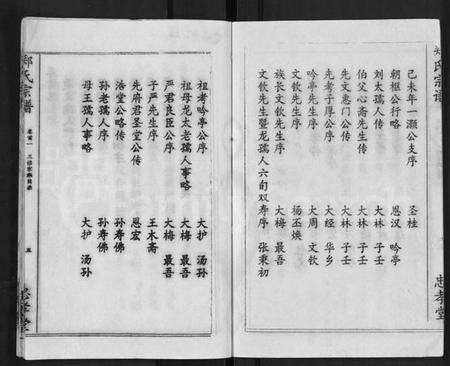 氏宗譜
己未年一灝公支序 圣桂
朝樞公行略 恩汉 吟亭
刘太孺人传 大林 子壬
伯父心斋先生传 大林 子壬
先文惠门公传 大林 子壬
先考子厚公序 大经 华乡
吟亭先生序 大周 文钦
文钦先生序 杨丕焕
族长文钦先生序 大梅 最吾
文钦先生暨龙孺人六旬双寿序 张秉初
忠孝堂
祖考吟亭公序 大护 汤孙
祖母龙太老孺人事略 大梅 最吾
严君良臣公序 大梅 最吾
子严先生序 王木斋
先府君圣堂公传 恩宏
浩堂公略传 孙寿佛
孙老孺人序 孙寿佛
母王孺人事略 大护 汤孙
氏宗譜
卷首一 三修家乘目录
五
忠孝堂